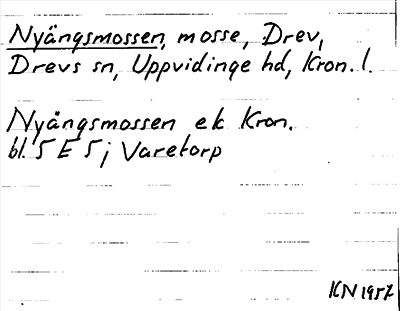 Nyängsmossen, mosse, Drev,
Drevs sn, Uppvidinge hd, Kron. l.
Nyängsmossen ek Kron.
bl. 5 E 5 j Varetorp
KN 1957